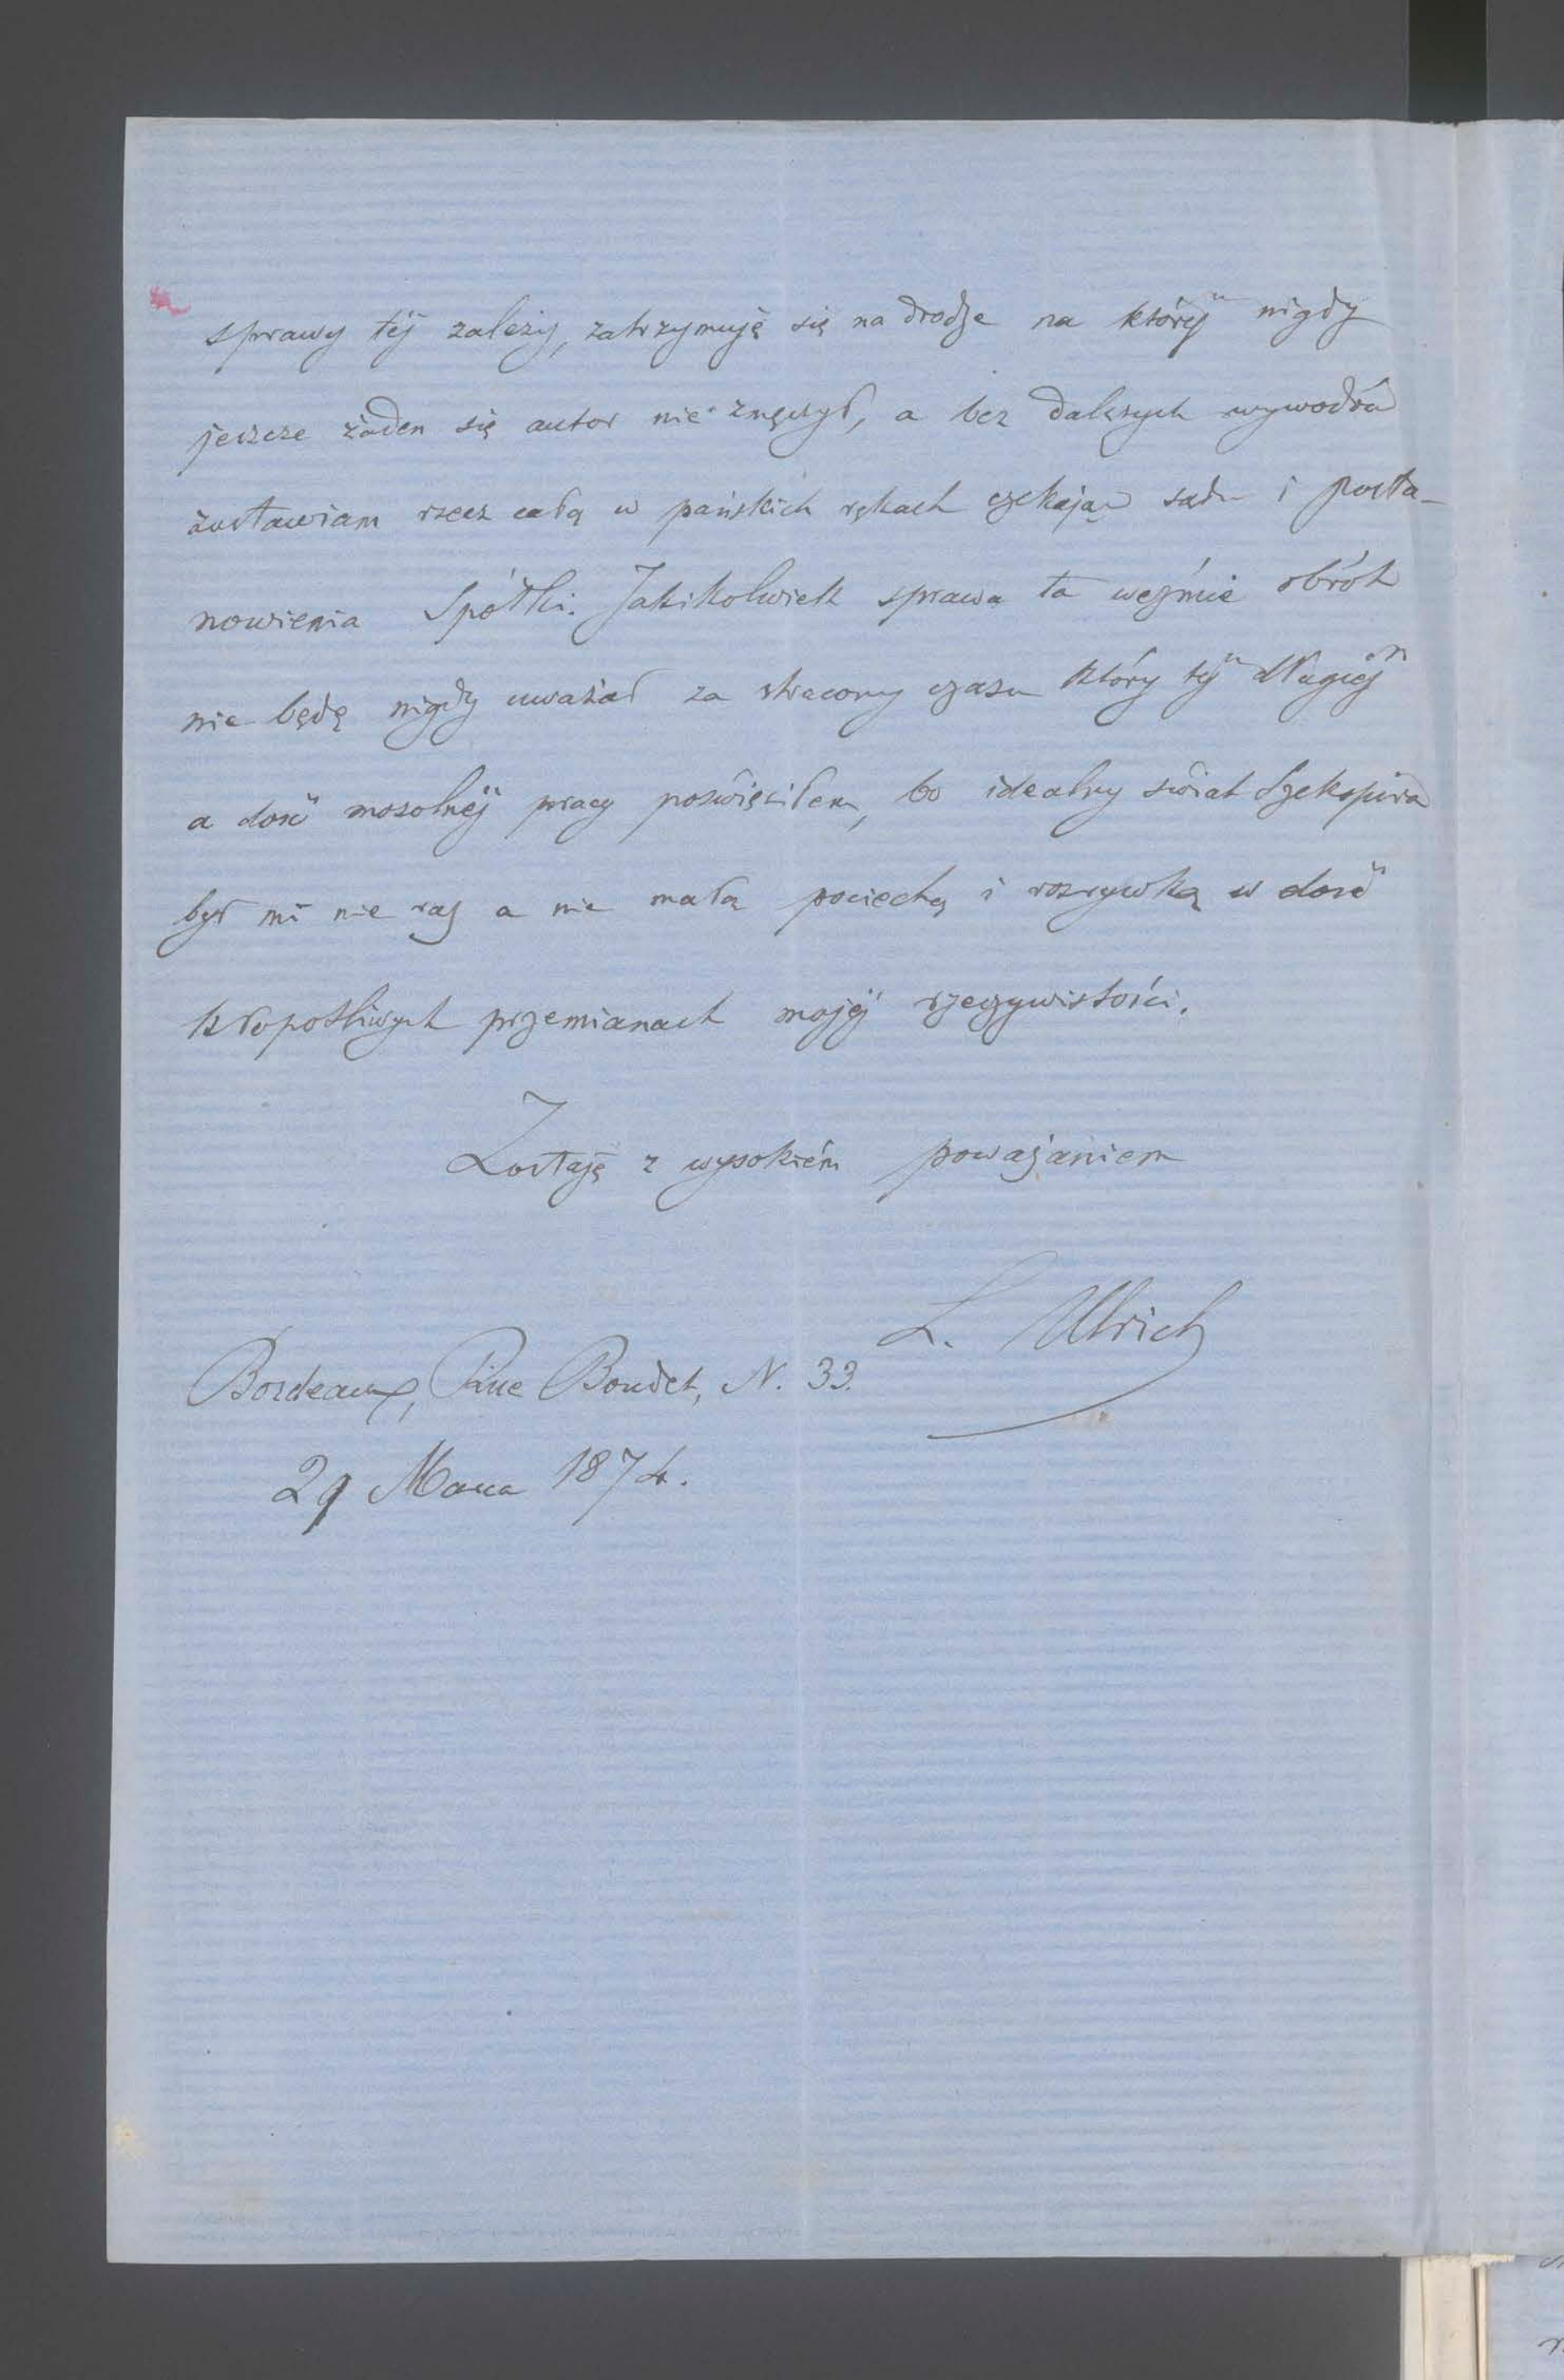 sprawy téj zależy, zatrzymuję się na drodze na któréj nigdy
jeszcze żaden się autor nie zmęczył, a bez dalszych wywodów
zostawiam rzecz całą w pańskich rękach czekając sądu i posta-
nowienia Spółki. Jakikolwiek sprawa ta weźmie obrót
nie będę nigdy uważał za stracony czasu który téj długiéj
a dość mozolnéj pracy poświęciłem, bo idealny świat Szekspira
był mi nie raz a nie małą pociechą i rozrywką w dość
kłopotliwych przemianach mojéj rzeczywistości.
Zostaję z wysokiém poważaniem
L. Ulrich
Bordeaux, Rue Boudet, N. 33.
29 Marca 1874.